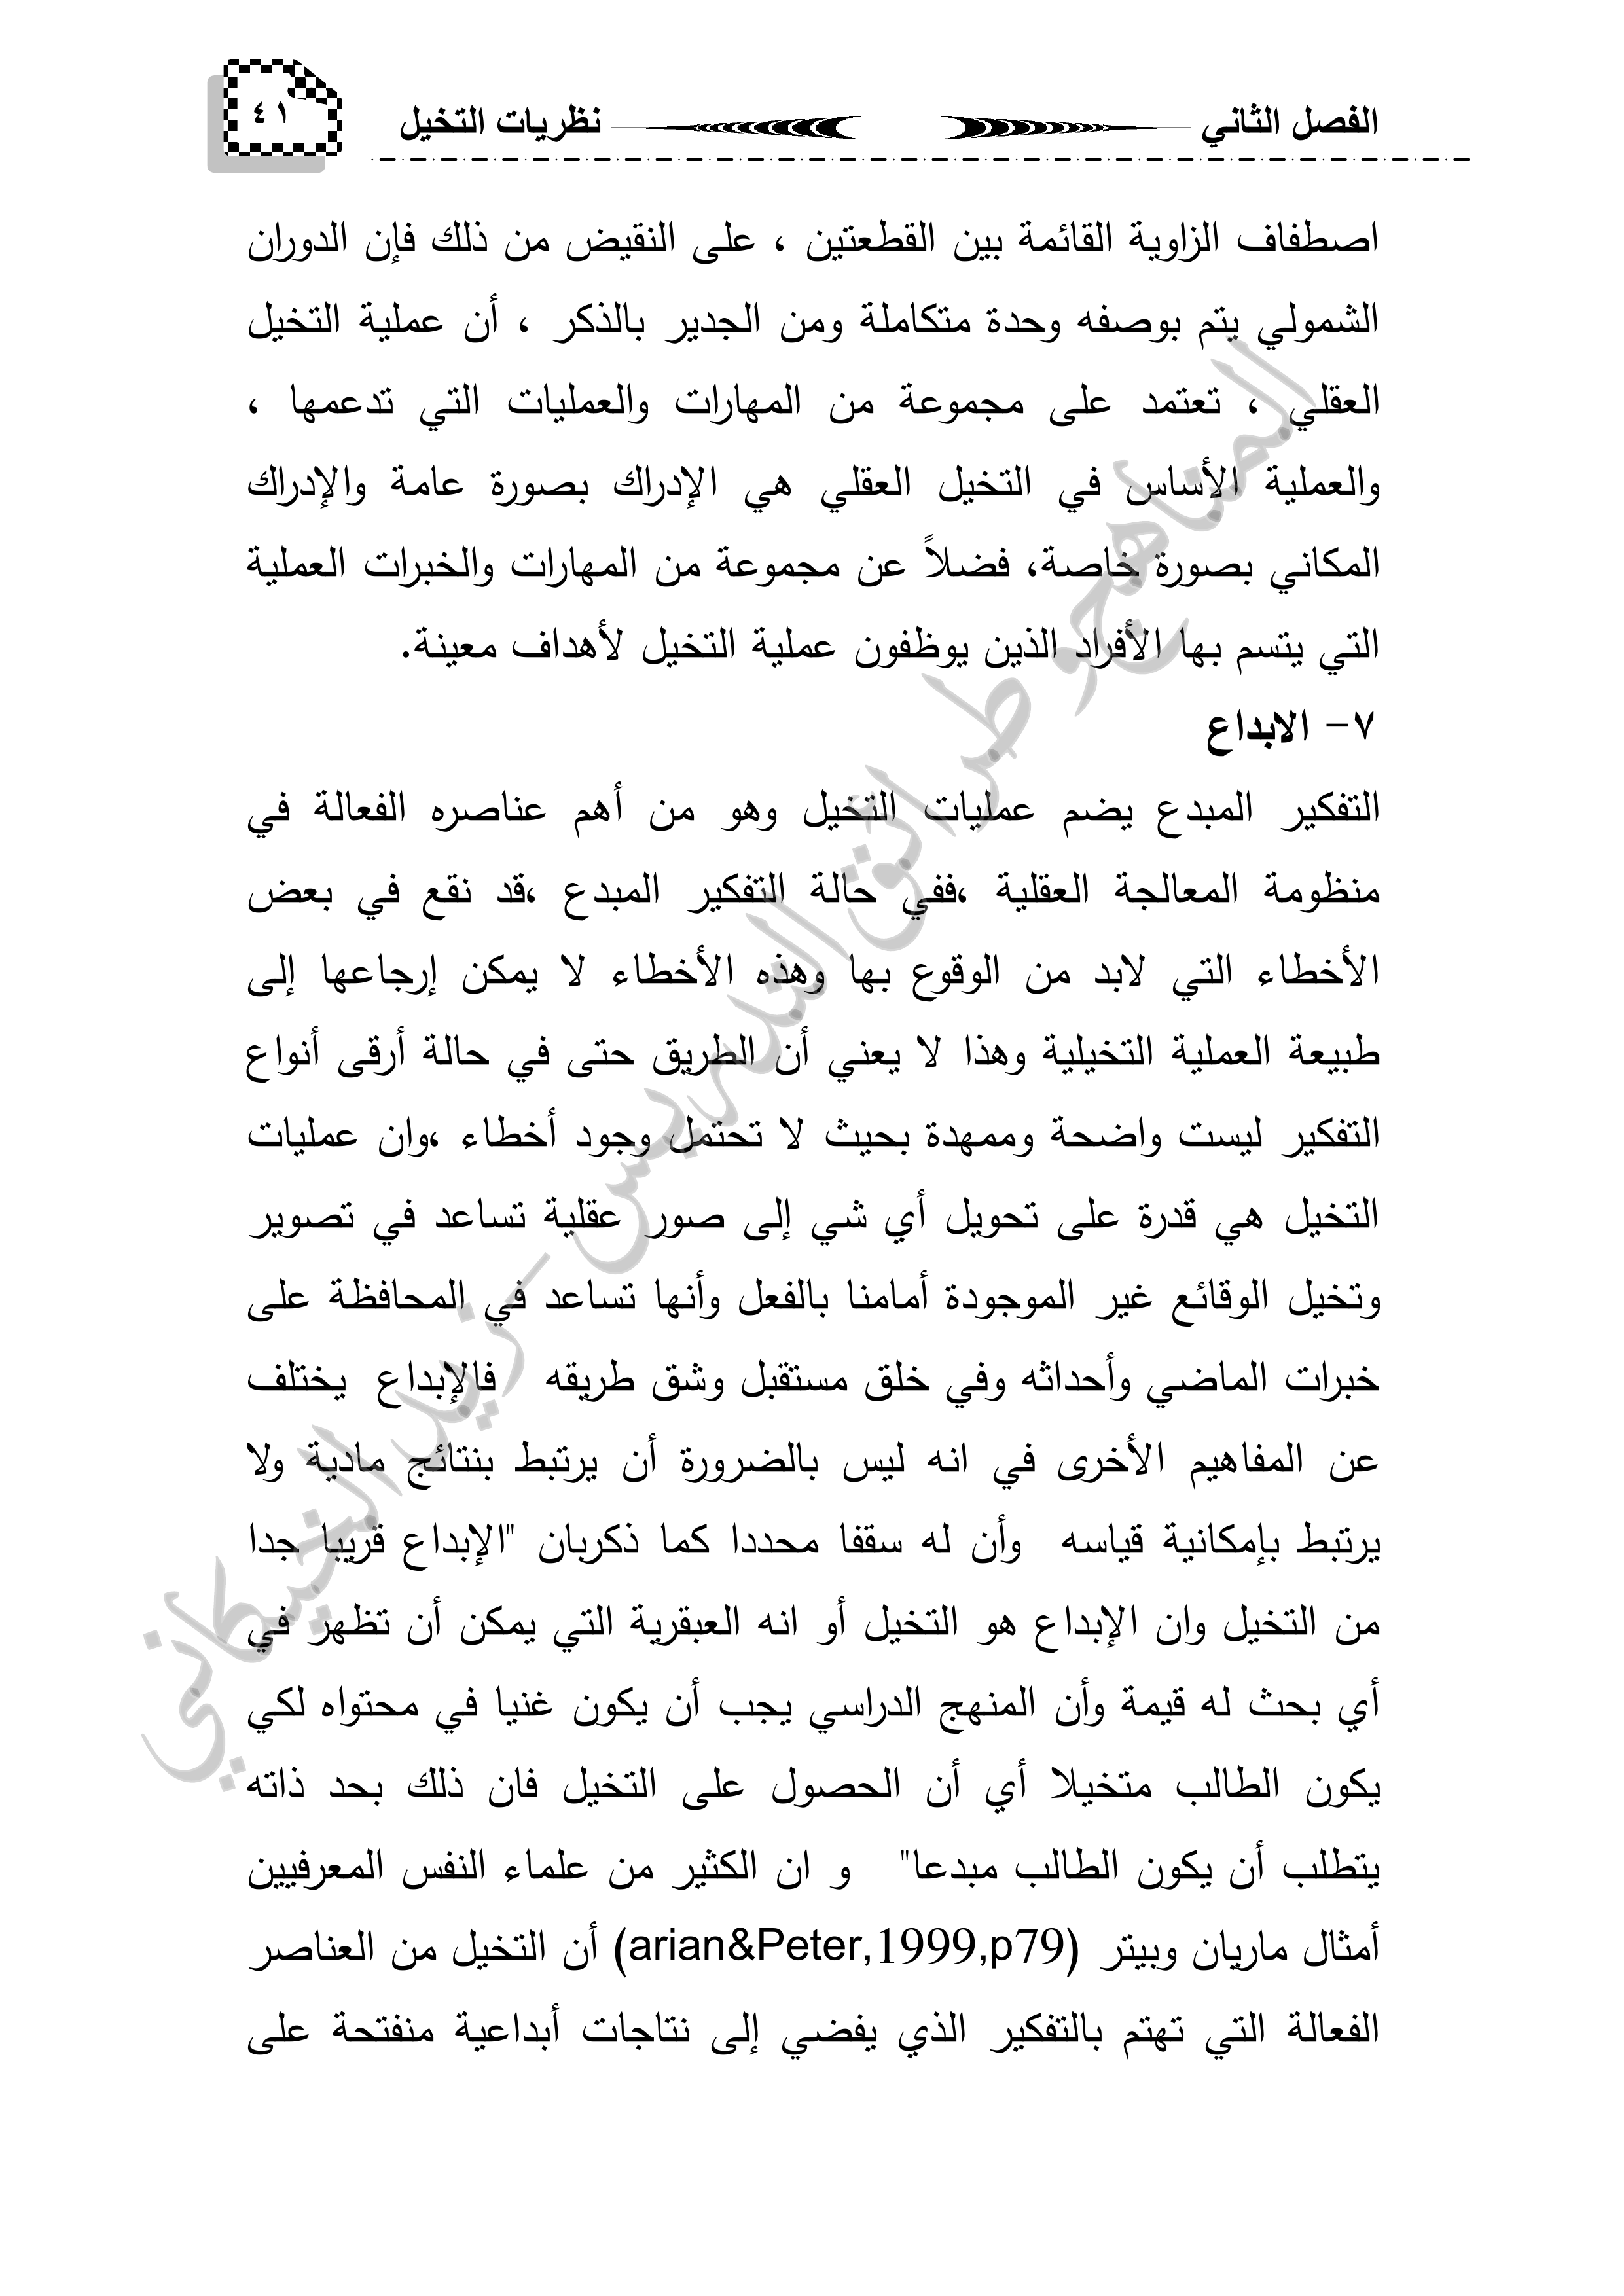 الفصل الثاني نظريات التخيل ٤١
اصطفاف الزاوية القائمة بين القطعتين ، على النقيض من ذلك فإن الدوران
الشمولي يتم بوصفه وحدة متكاملة ومن الجدير بالذكر ، أن عملية التخيل
العقلي ، تعتمد على مجموعة من المهارات والعمليات التي تدعمها ،
والعملية الأساس في التخيل العقلي هي الإدراك بصورة عامة والإدراك
المكاني بصورة خاصة، فضلاً عن مجموعة من المهارات والخبرات العملية
التي يتسم بها الأفراد الذين يوظفون عملية التخيل لأهداف معينة.
٧- الابداع
التفكير المبدع يضم عمليات التخيل وهو من أهم عناصره الفعالة في
منظومة المعالجة العقلية ،ففي حالة التفكير المبدع ،قد نقع في بعض
الأخطاء التي لابد من الوقوع بها وهذه الأخطاء لا يمكن إرجاعها إلى
طبيعة العملية التخيلية وهذا لا يعني أن الطريق حتى في حالة أرقى أنواع
التفكير ليست واضحة وممهدة بحيث لا تحتمل وجود أخطاء ،وان عمليات
التخيل هي قدرة على تحويل أي شي إلى صور عقلية تساعد في تصوير
وتخيل الوقائع غير الموجودة أمامنا بالفعل وأنها تساعد في المحافظة على
خبرات الماضي وأحداثه وفي خلق مستقبل وشق طريقه فالإبداع يختلف
عن المفاهيم الأخرى في انه ليس بالضرورة أن يرتبط بنتائج مادية ولا
يرتبط بإمكانية قياسه وأن له سقفا محددا كما ذكربان "الإبداع قريبا جدا
من التخيل وان الإبداع هو التخيل أو انه العبقرية التي يمكن أن تظهر في
أي بحث له قيمة وأن المنهج الدراسي يجب أن يكون غنيا في محتواه لكي
يكون الطالب متخيلا أي أن الحصول على التخيل فان ذلك بحد ذاته
يتطلب أن يكون الطالب مبدعا" و ان الكثير من علماء النفس المعرفيين
أمثال ماريان وبيتر (arian&Peter,1999,p79) أن التخيل من العناصر
الفعالة التي تهتم بالتفكير الذي يفضي إلى نتاجات أبداعية منفتحة على
المناهج و طرائق التدريس - زيد الخيكاني